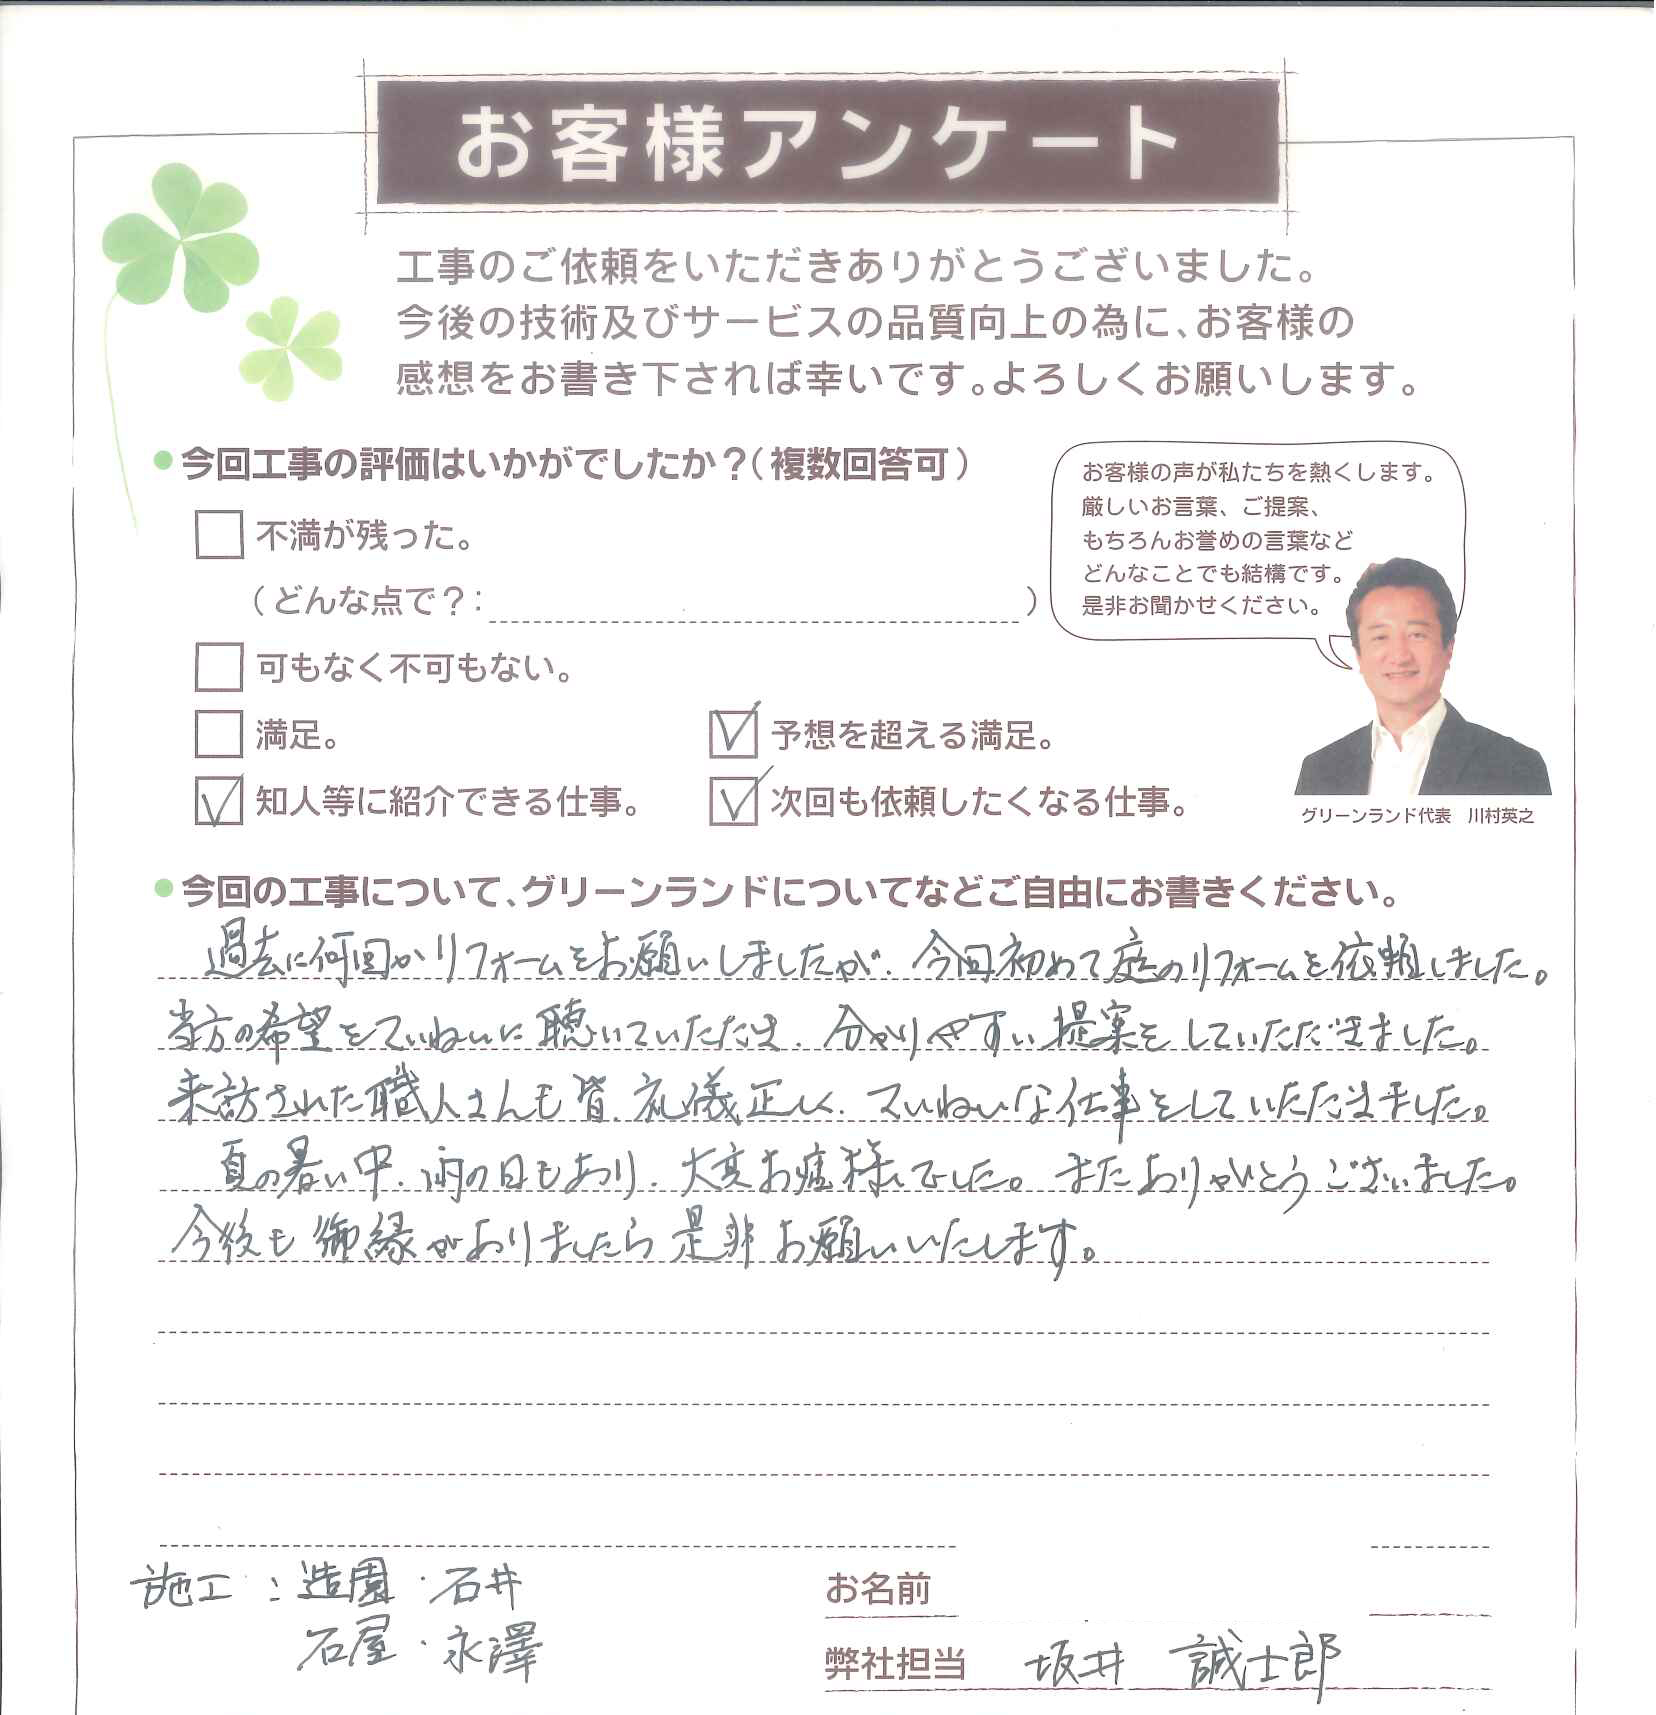 お客様アンケート
工事のご依頼をいただきありがとうございました。
今後の技術及びサービスの品質向上の為に、お客様の
感想をお書き下されば幸いです。よろしくお願いします。
●今回工事の評価はいかがでしたか？（複数回答可）
不満が残った。
（どんな点で？：　　　）
可もなく不可もない。
満足。
予想を超える満足。
知人等に紹介できる仕事。
次回も依頼したくなる仕事。
お客様の声が私たちを熱くします。
厳しいお言葉、ご提案、
もちろんお誉めの言葉など
どんなことでも結構です。
是非お聞かせください。
グリーンランド代表　川村英之
●今回の工事について、グリーンランドについてなどご自由にお書きください。
過去に何回かリフォームをお願いしましたが、今回初めて庭のリフォームを依頼しました。
当方の希望をていねいに聴いていただき、分かりやすい提案をしていただきました。
来訪された職人さんも皆、礼儀正しく、ていねいな仕事をしていただきました。
夏の暑い中、雨の日もあり、大変お疲様でした。またありがとうございました。
今後も御縁がありましたら是非お願いいたします。
施工：造園・石井
石屋・永澤
お名前
弊社担当　坂井　誠士郎